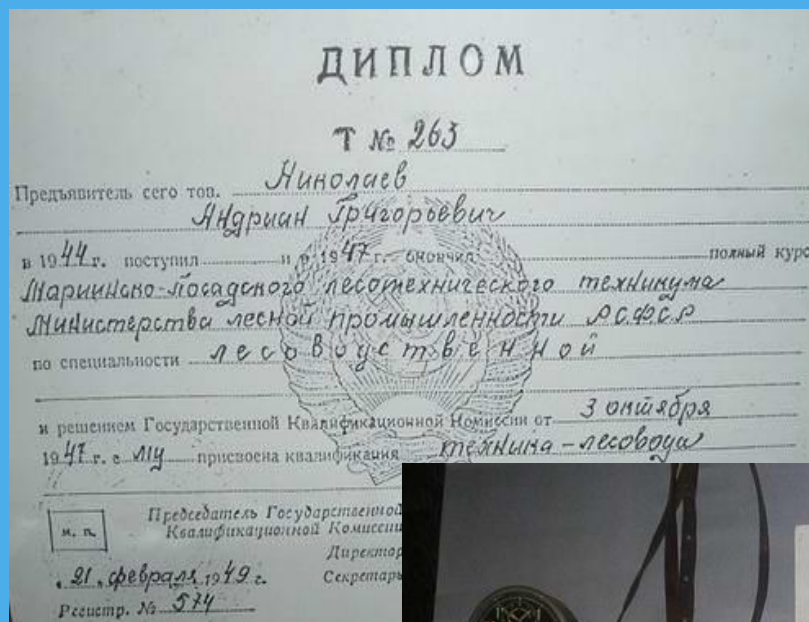 ДИПЛОМ
Т № 263
Предъявитель сего тов. Николаев
Андриан Григорьевич
в 1944 г. поступил и в 1947 г. окончил полный курс
Мариинско-Посадского лесотехнического техникума
Министерства лесной промышленности РСФСР
по специальности лесоводственной
и решением Государственной Квалификационной Комиссии от 3 октября
1947 г. ему присвоена квалификация техника-лесовода
м. п.
Председатель Государственной
Квалификационной Комиссии
Директор
Секретарь
21 февраля 1949 г.
Регистр. № 574